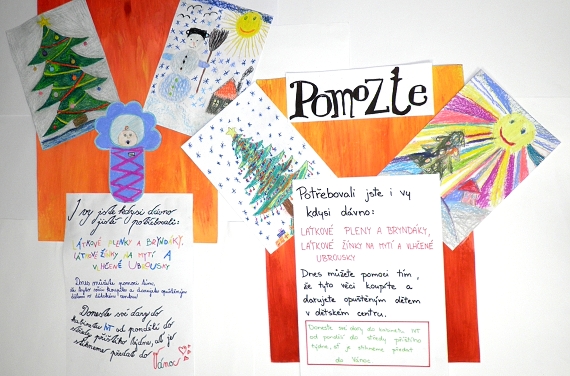 Pomozte
I vy jste kdysi dávno
jistě potřebovali:
LÁTKOVÉ PLENKY A BRYNDÁKY,
LÁTKOVÉ ŽÍNKY NA MYTÍ A
VLHČENÉ UBROUSKY
Dnes můžete pomoci tím,
že tyto věci koupíte a darujete opuštěným
dětem v dětském centru!
Doneste své dary do
kabinetu NT od pondělí do
středy příštího týdne, ať je
stihneme předat do
Vánoc
Potřebovali jste i vy
kdysi dávno:
LÁTKOVÉ PLENY A BRYNDÁKY,
LÁTKOVÉ ŽÍNKY NA MYTÍ A VLHČENÉ
UBROUSKY
Dnes můžete pomoci tím,
že tyto věci koupíte a
darujete opuštěným dětem
v dětském centru.
Doneste své dary do kabinetu NT
od pondělí do středy příštího
týdne, ať je stihneme předat
do Vánoc